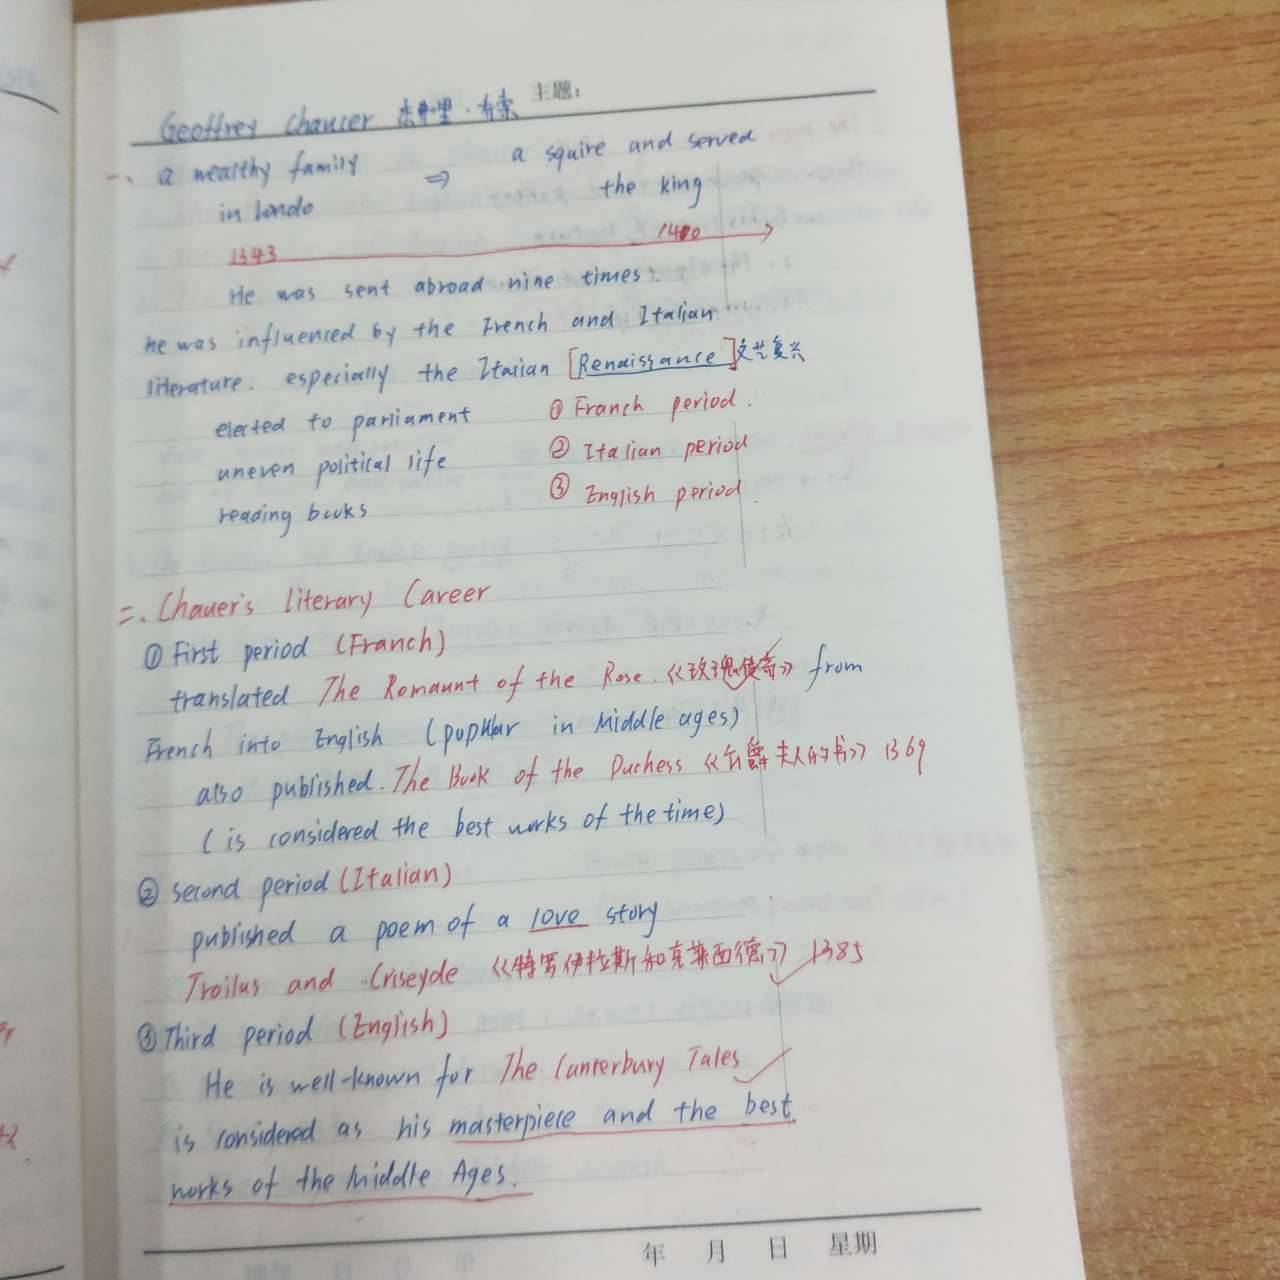 主题:
Geoffrey Chaucer 杰弗里·乔叟
一、a wealthy family ⇒ a squire and served
in Londo the king
1343 1400
He was sent abroad nine times.
he was influenced by the French and Italian
literature. especially the Italian [Renaissance] 文艺复兴
elected to parliament ① Franch period.
uneven political life ② Italian period
reading books ③ English period.
二、Chauer's literary Career
① First period (Franch)
translated The Romaunt of the Rose.《玫瑰传奇》 from
French into English (popular in Middle ages)
also published. The Book of the Duchess 《公爵夫人的书》 1369
(is considered the best works of the time)
② second period (Italian)
published a poem of a love story
Troilus and Criseyde 《特罗伊拉斯和克莱西德》 1385
③ Third period (English)
He is well-known for The Canterbury Tales
is considered as his masterpiece and the best
works of the Middle Ages.
年 月 日 星期